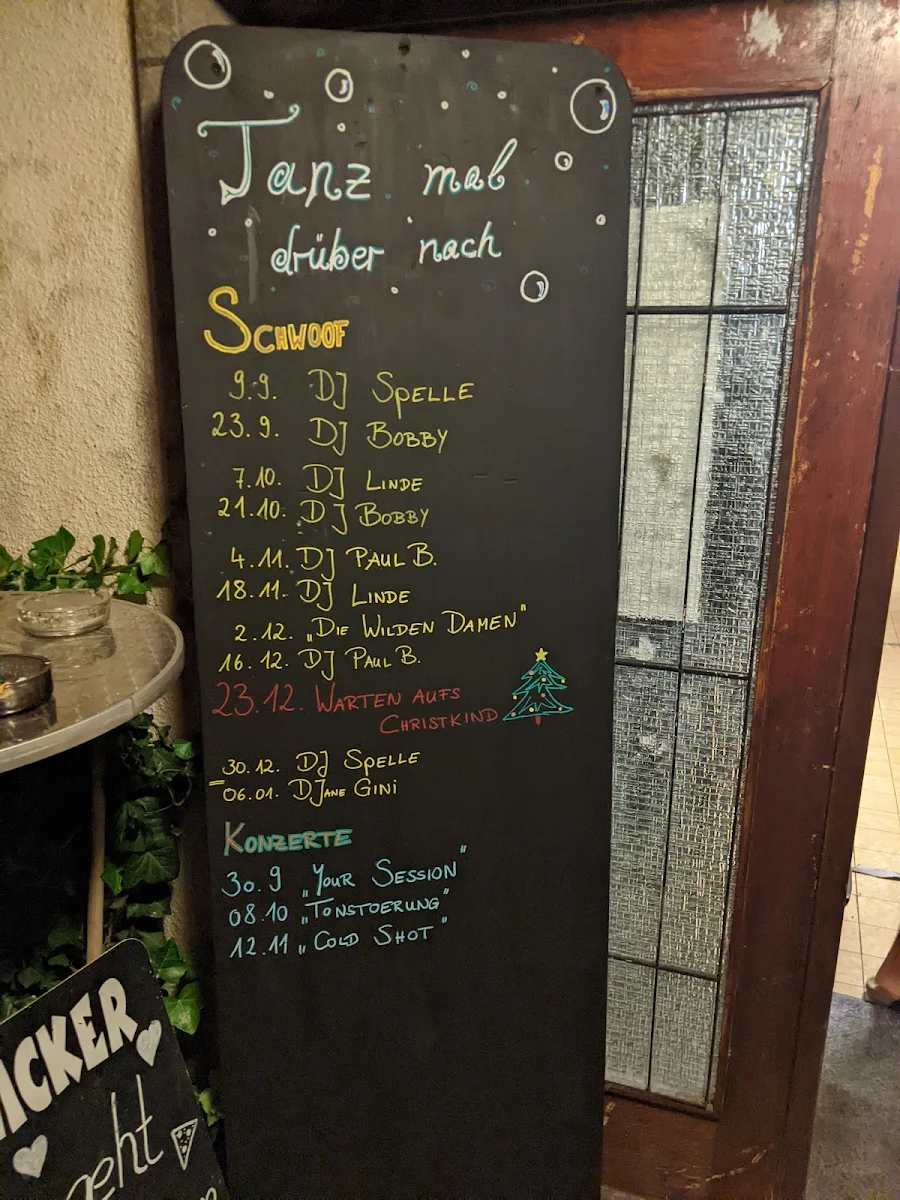 Tanz mal
drüber nach
SCHWOOF
9.9. DJ SPELLE
23.9. DJ BOBBY
7.10. DJ LINDE
21.10. DJ BOBBY
4.11. DJ PAUL B.
18.11. DJ LINDE
2.12. „DIE WILDEN DAMEN"
16.12. DJ PAUL B.
23.12. WARTEN AUFS
CHRISTKIND
30.12. DJ SPELLE
06.01. DJANE GINI
KONZERTE
30.9 „YOUR SESSION"
08.10 „TONSTOERUNG"
12.11 „COLD SHOT"
ICKER
geht